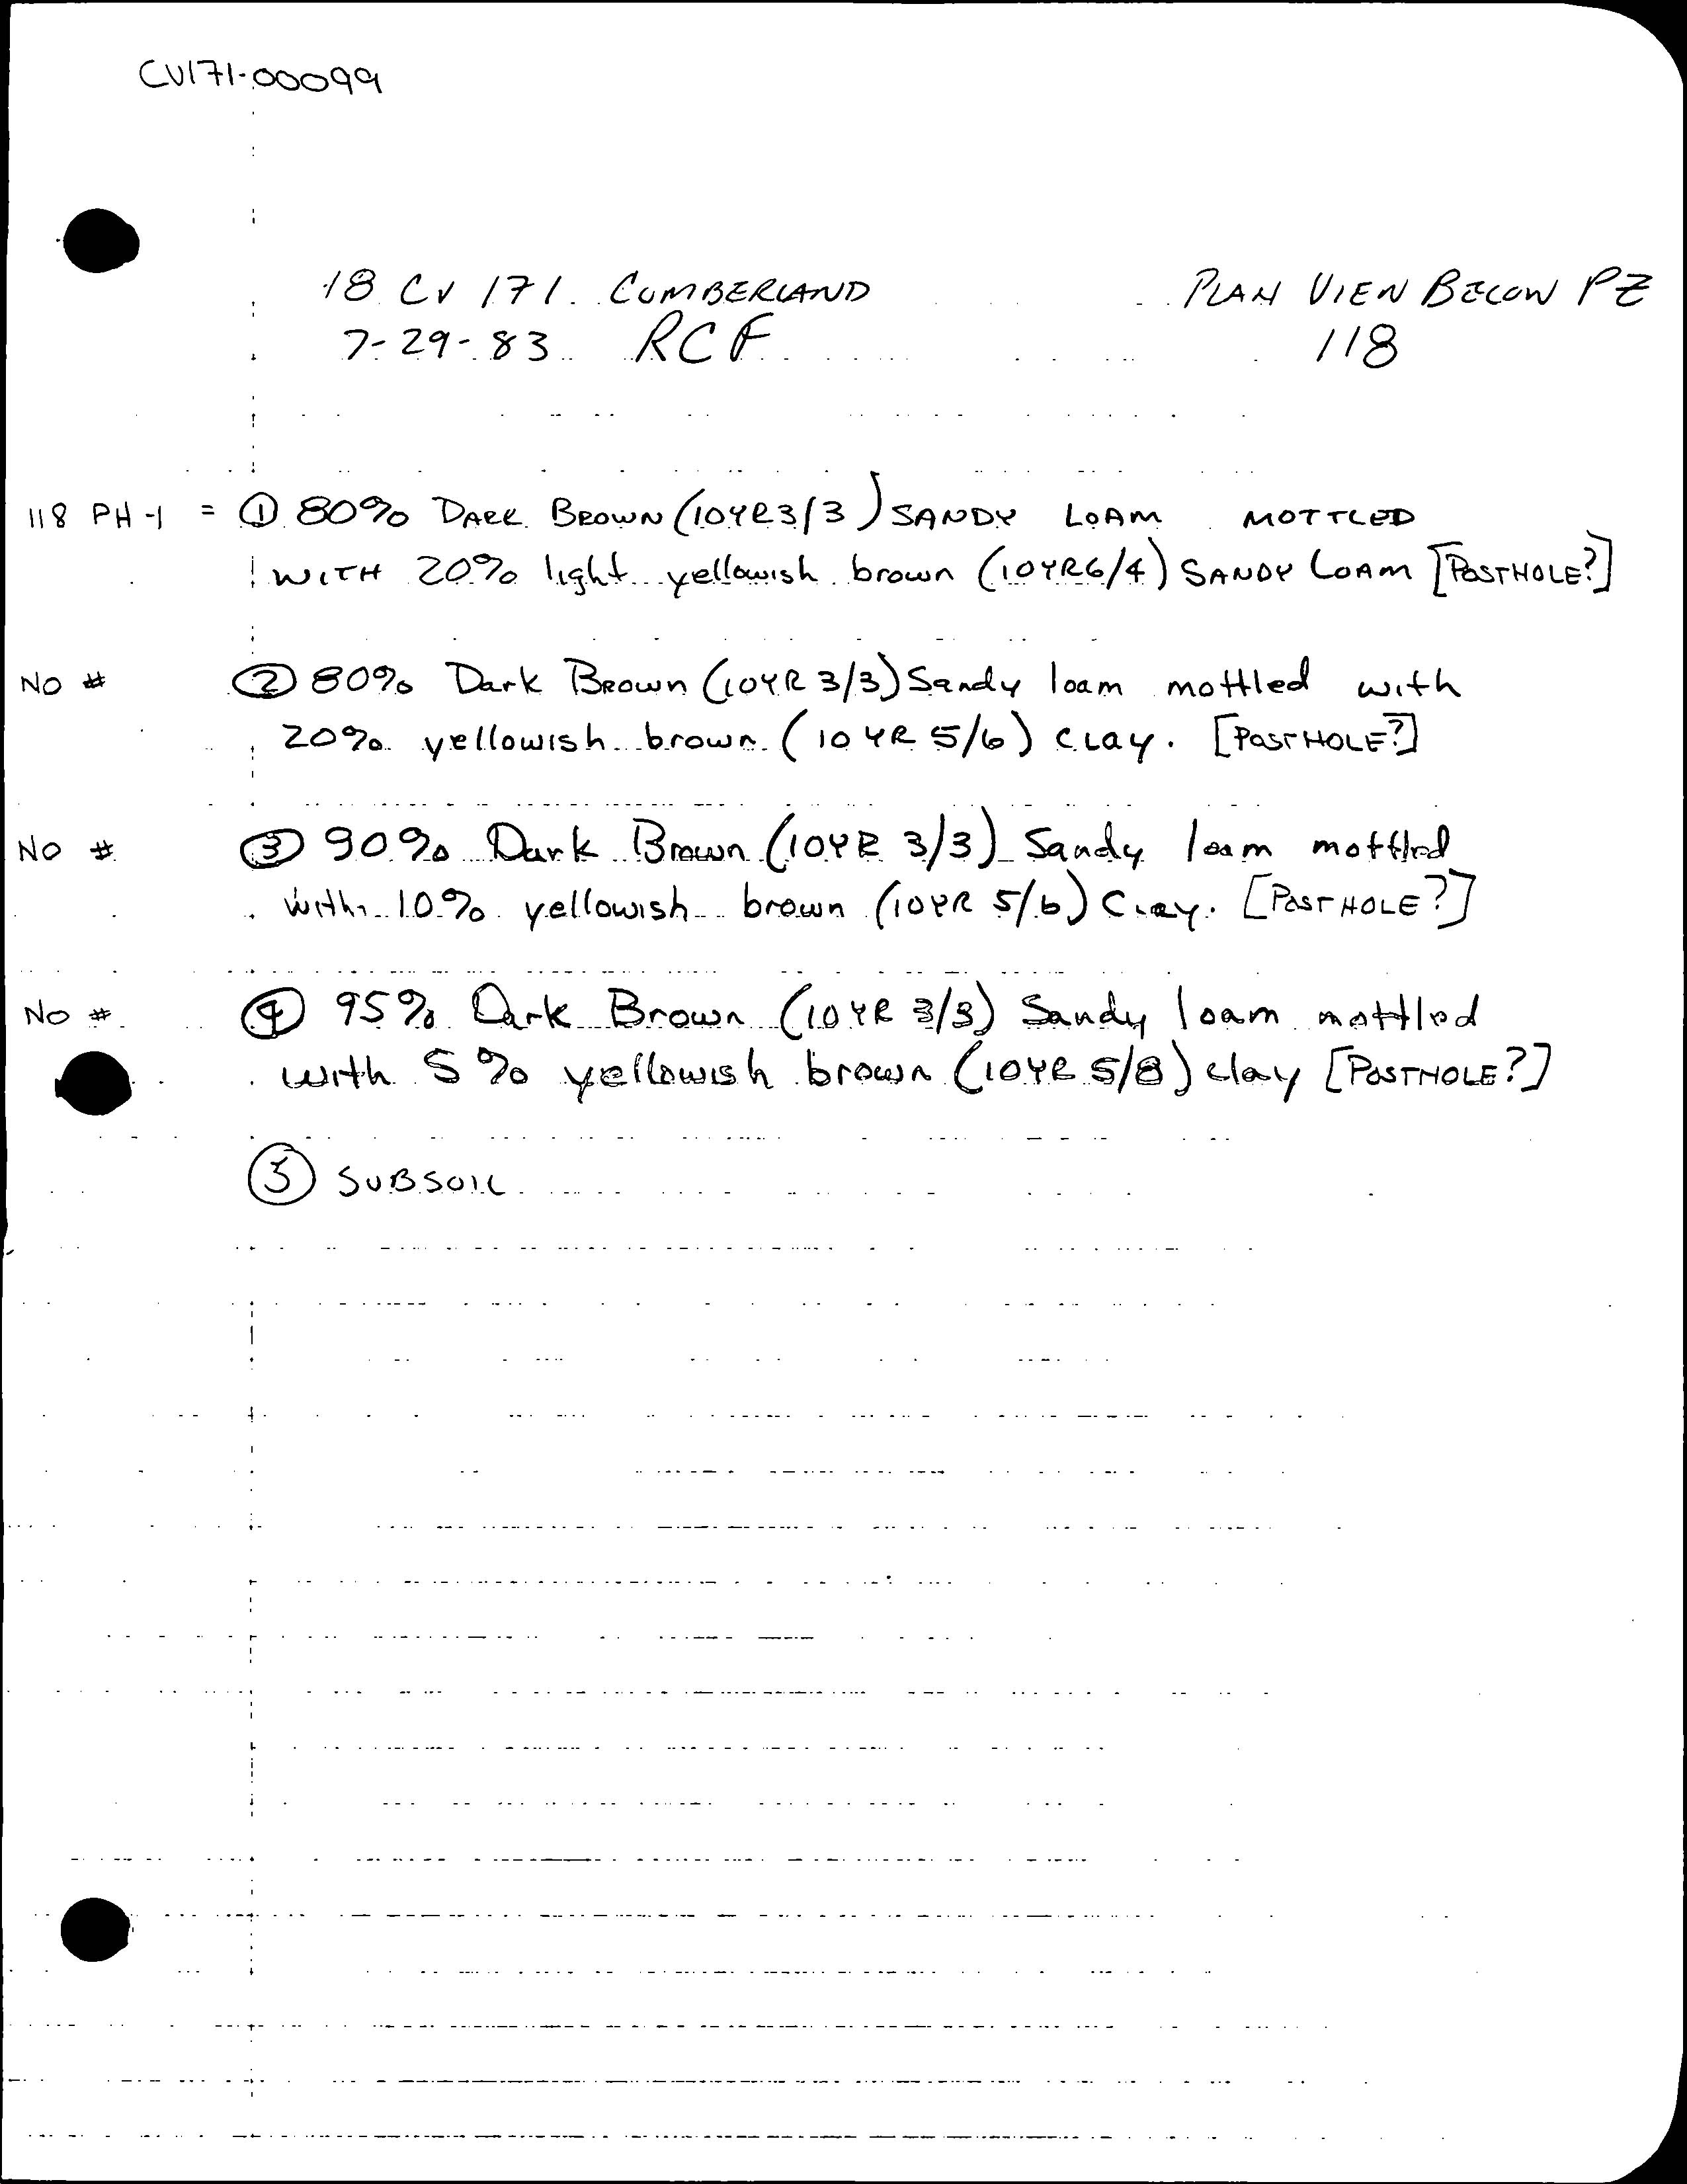 CV171-00099
18 CV 171 CUMBERLAND PLAN VIEW BELOW PZ
7-29-83 RCF 118
118 PH-1 = ① 80% DARK BROWN (10YR3/3) SANDY LOAM MOTTLED
WITH 20% light yellowish brown (10YR6/4) SANDY LOAM [POSTHOLE?]
NO # ② 80% Dark Brown (10YR 3/3) Sandy loam mottled with
20% yellowish brown (10YR 5/6) CLAY. [POSTHOLE?]
NO # ③ 90% Dark Brown (10YR 3/3) Sandy loam mottled
with 10% yellowish brown (10YR 5/6) Clay. [POSTHOLE?]
NO # ④ 95% Dark Brown (10YR 3/3) Sandy loam mottled
with 5% yellowish brown (10YR 5/8) clay [POSTHOLE?]
⑤ SUBSOIL